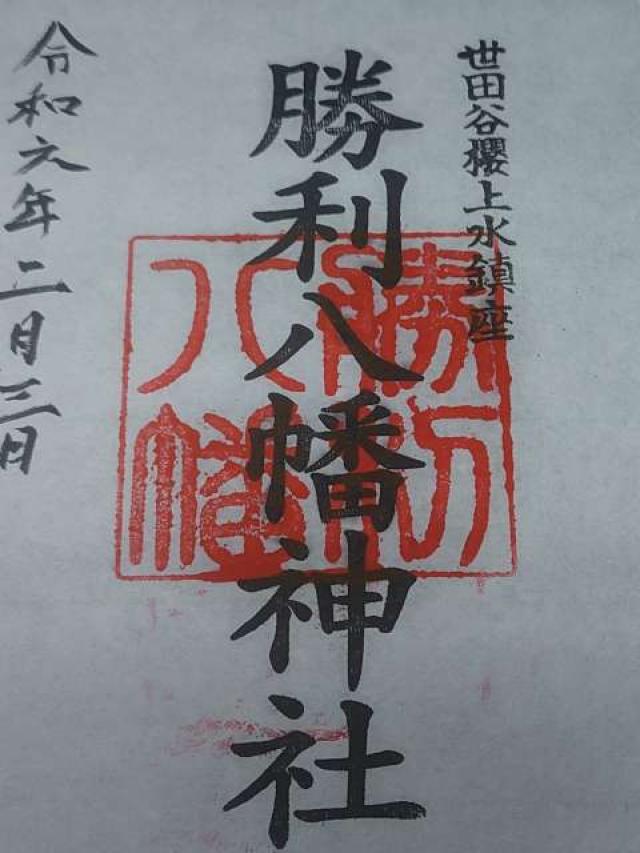 世田谷櫻上水鎮座
勝利八幡神社
勝利
八幡
令和元年二月三日